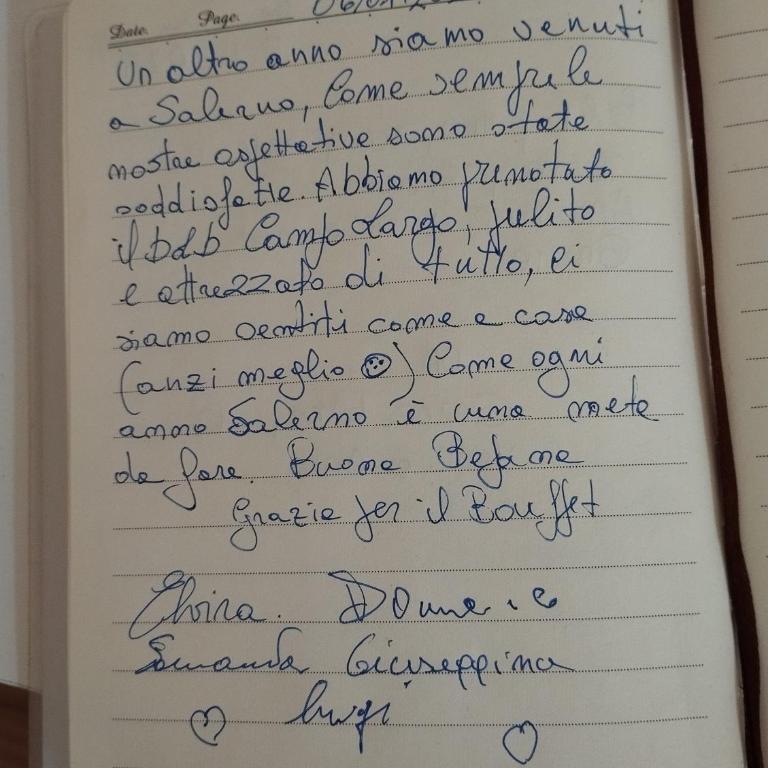 Date. Page. 06/01/
Un altro anno siamo venuti
a Salerno, Come sempre le
nostre aspettative sono state
soddisfatte. Abbiamo prenotato
il b&b Campo Largo, pulito
e attrezzato di tutto, ci
siamo sentiti come a casa
(anzi meglio ☺) Come ogni
anno Salerno è una meta
da fare. Buona Befana
Grazie per il Bouffet
Elvira.
Giuseppina
Luigi